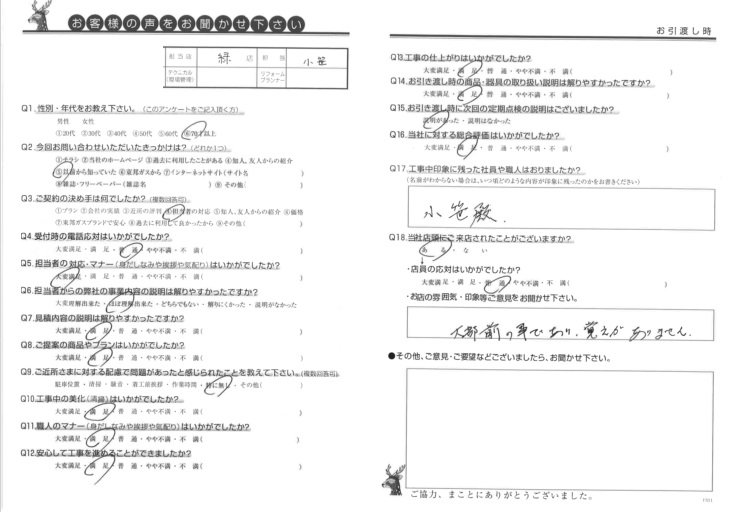 お客様の声をお聞かせ下さい
担当店 緑 店 担当 小笹
テクニカル(現場管理) リフォームプランナー
Q1.性別・年代をお教え下さい。(このアンケートをご記入頂く方)
男性 女性
①20代 ②30代 ③40代 ④50代 ⑤60代 ⑥70才以上
Q2.今回お問い合わせいただいたきっかけは?(どれか1つ)
①チラシ ②当社のホームページ ③過去に利用したことがある ④知人、友人からの紹介
⑤以前から知っていた ⑥東邦ガスから ⑦インターネットサイト(サイト名 )
⑧雑誌・フリーペーパー(雑誌名 ) ⑨その他( )
Q3.ご契約の決め手は何でしたか?(複数回答可)
①プラン ②会社の実績 ③近所の評判 ④担当者の対応 ⑤知人、友人からの紹介 ⑥価格
⑦東邦ガスブランドで安心 ⑧過去に利用して良かったから ⑨その他( )
Q4.受付時の電話応対はいかがでしたか?
大変満足・満 足・普 通・やや不満・不 満( )
Q5.担当者の対応・マナー(身だしなみや挨拶や気配り)はいかがでしたか?
大変満足・満 足・普 通・やや不満・不 満( )
Q6.担当者からの弊社の事業内容の説明は解りやすかったですか?
大変理解出来た・ほぼ理解出来た・どちらでもない・解りにくかった・説明がなかった
Q7.見積内容の説明は解りやすかったですか?
大変満足・満 足・普 通・やや不満・不 満( )
Q8.ご提案の商品やプランはいかがでしたか?
大変満足・満 足・普 通・やや不満・不 満( )
Q9.ご近所さまに対する配慮で問題があったと感じられたことを教えて下さい。(複数回答可)
駐車位置・清掃・騒音・着工前挨拶・作業時間・特に無し・その他( )
Q10.工事中の美化(清掃)はいかがでしたか?
大変満足・満 足・普 通・やや不満・不 満( )
Q11.職人のマナー(身だしなみや挨拶や気配り)はいかがでしたか?
大変満足・満 足・普 通・やや不満・不 満( )
Q12.安心して工事を進めることができましたか?
大変満足・満 足・普 通・やや不満・不 満( )
お引渡し時
Q13.工事の仕上がりはいかがでしたか?
大変満足・満 足・普 通・やや不満・不 満( )
Q14.お引き渡し時の商品・器具の取り扱い説明は解りやすかったですか?
大変満足・満 足・普 通・やや不満・不 満( )
Q15.お引き渡し時に次回の定期点検の説明はございましたか?
説明があった・説明はなかった
Q16.当社に対する総合評価はいかがでしたか?
大変満足・満 足・普 通・やや不満・不 満( )
Q17.工事中印象に残った社員や職人はおりましたか?
(名前がわからない場合は、いつ頃どのような内容が印象に残ったのかをお書きください)
小笹殿.
Q18.当社店頭にご来店されたことがございますか?
あ る・な い
・店員の応対はいかがでしたか?
大変満足・満 足・普 通・やや不満・不 満( )
・お店の雰囲気・印象等ご意見をお聞かせ下さい。
大部前の事であり、覚えがありません.
●その他、ご意見・ご要望などございましたら、お聞かせ下さい。
ご協力、まことにありがとうございました。